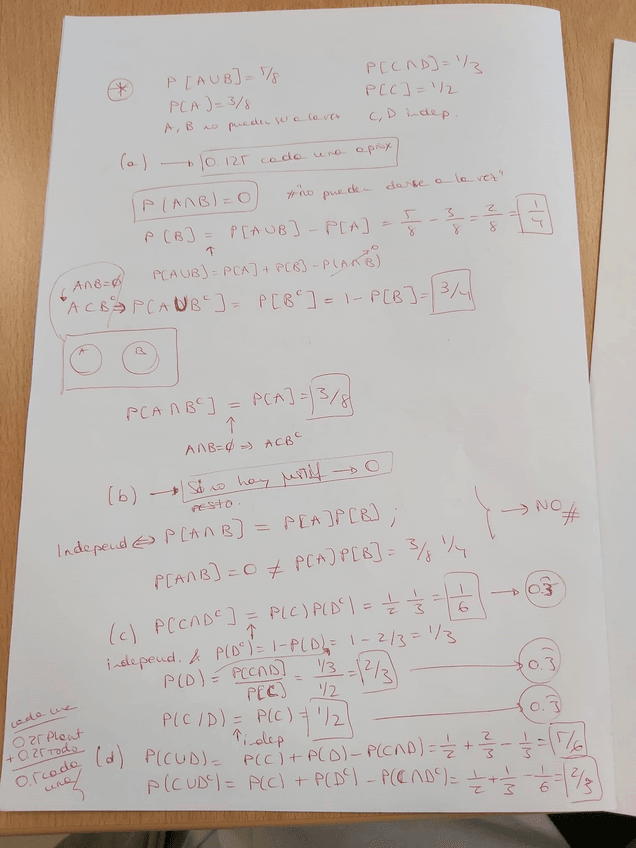 * P[A∪B]=5/8 P[C∩D]=1/3
P[A]=3/8 P[C]=1/2
A, B no pueden ser a la vez C, D indep.
(a) → 0.125 cada una aprox
P(A∩B)=0 * "no pueden darse a la vez"
P[B] = P[A∪B] - P[A] = 5/8 - 3/8 = 2/8 = 1/4
↑
P[A∪B]=P[A]+P[B]-P[A∩B]→0
A∩B=∅
A⊂Bᶜ ⇒ P[A∪Bᶜ] = P[Bᶜ] = 1-P[B] = 3/4
A B
P[A∩Bᶜ] = P[A] = 3/8
↑
A∩B=∅ ⇒ A⊂Bᶜ
(b) → Si no hay justif → 0
resto.
Independ ⇔ P[A∩B] = P[A]P[B] ;
→ NO #
P[A∩B]=0 ≠ P[A]P[B] = 3/8 1/4
(c) P[C∩Dᶜ] = P(C)P(Dᶜ) = 1/2 1/3 = 1/6 → 0.3̄
↑
independ. & P(Dᶜ)=1-P(D) = 1-2/3 = 1/3
P(D) = P(C∩D)/P(C) = 1/3 / 1/2 = 2/3 → 0.3̄
P(C/D) = P(C) = 1/2 → 0.3̄
↑ indep
cada una
0.25 Plant
+ 0.25 todo
0.5 cada una
(d) P(C∪D) = P(C)+P(D)-P(C∩D) = 1/2 + 2/3 - 1/3 = 5/6
P(C∪Dᶜ) = P(C)+P(Dᶜ)-P(C∩Dᶜ) = 1/2 + 1/3 - 1/6 = 2/3